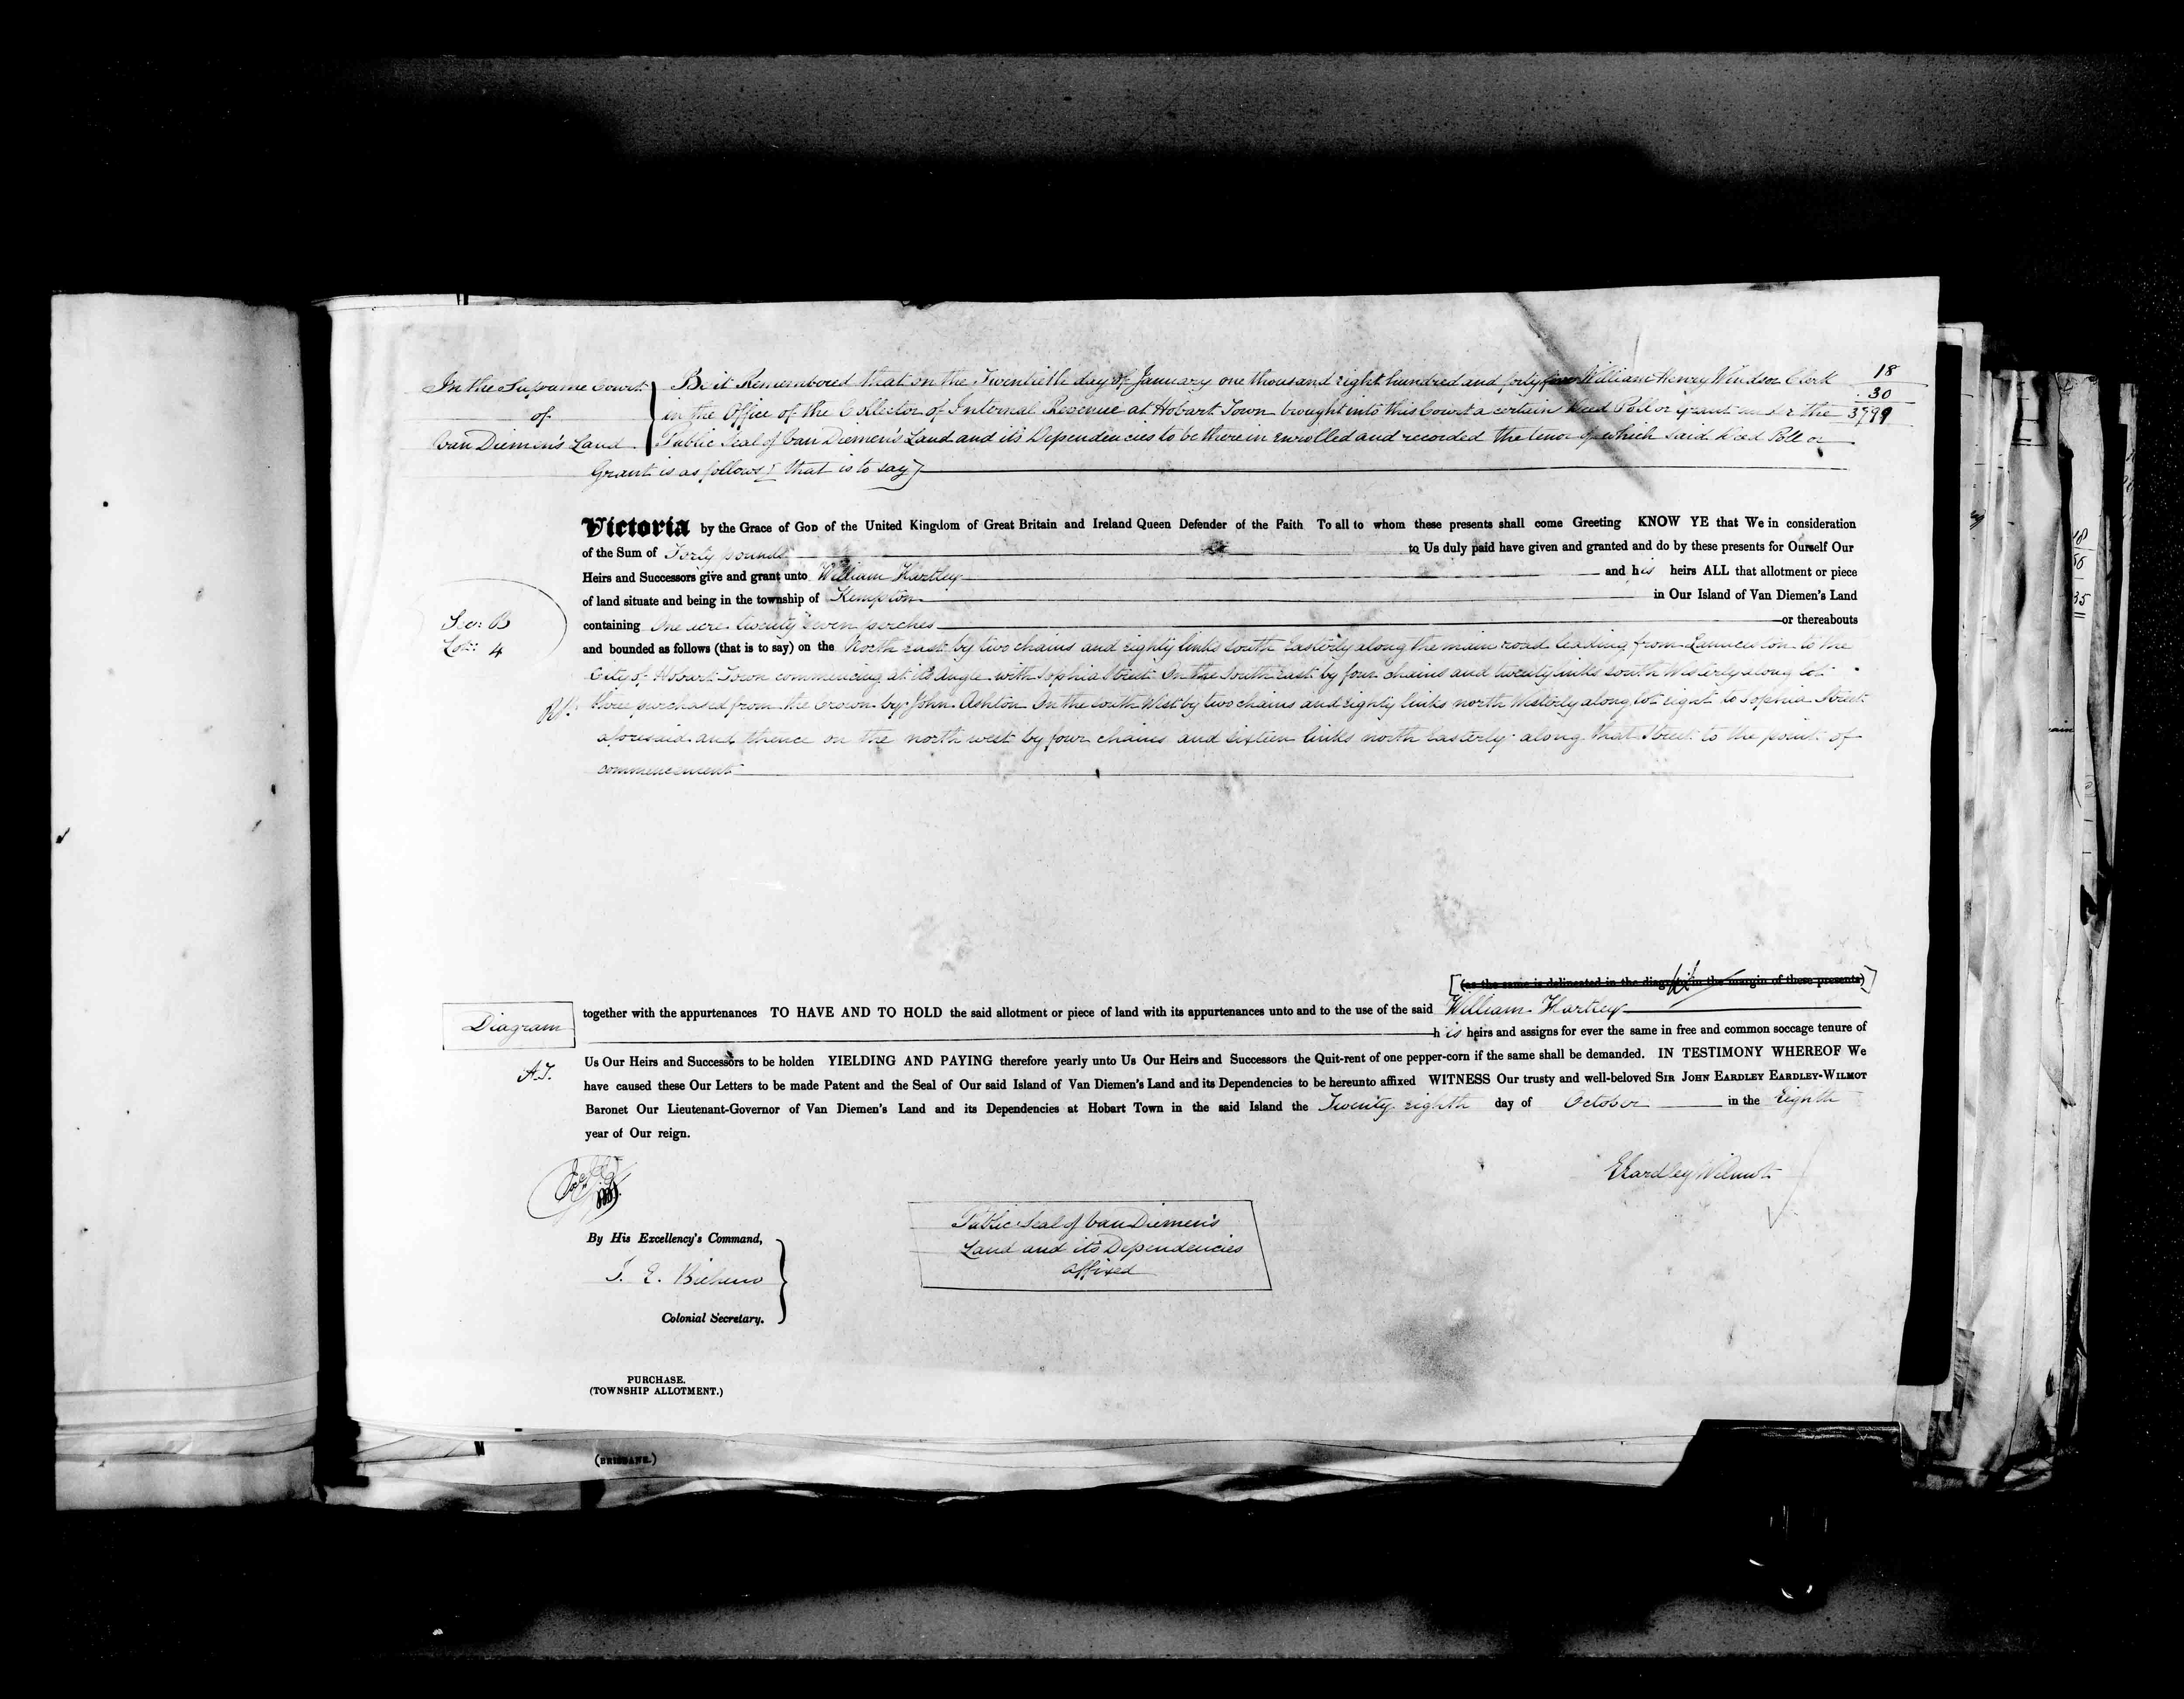 In the Supreme Court
of
Van Diemen's Land
Be it Remembered that on the Twentieth day of January one thousand eight hundred and forty William Henry Windsor Clerk
in the Office of the Collector of Internal Revenue at Hobart Town brought into this Court a certain Deed Poll or Grant under the
Public Seal of Van Diemen's Land and its Dependencies to be therein enrolled and recorded the tenor of which said Deed Poll or
Grant is as follows (that is to say)
18
30
3799
Victoria by the Grace of God of the United Kingdom of Great Britain and Ireland Queen Defender of the Faith To all to whom these presents shall come Greeting KNOW YE that We in consideration
of the Sum of Forty pounds to Us duly paid have given and granted and do by these presents for Ourself Our
Heirs and Successors give and grant unto William Hartley and his heirs ALL that allotment or piece
of land situate and being in the township of Kempton in Our Island of Van Diemen's Land
Sec: B
Lot: 4
containing One acre twenty seven perches or thereabouts
and bounded as follows (that is to say) on the North East by two chains and eighty links South Easterly along the main road leading from Launceston to the
City of Hobart Town commencing at its angle with Sophia Street On the South East by four chains and twenty links South Westerly along lot
three purchased from the Crown by John Ashton On the South West by two chains and eighty links north Westerly along lot eight to Sophia Street
aforesaid and thence on the north west by four chains and sixteen links north Easterly along that Street to the point of
commencement
(as the same is delineated in the diagram in the margin of these presents)
Diagram
together with the appurtenances TO HAVE AND TO HOLD the said allotment or piece of land with its appurtenances unto and to the use of the said William Hartley
his heirs and assigns for ever the same in free and common soccage tenure of
Us Our Heirs and Successors to be holden YIELDING AND PAYING therefore yearly unto Us Our Heirs and Successors the Quit-rent of one pepper-corn if the same shall be demanded. IN TESTIMONY WHEREOF We
have caused these Our Letters to be made Patent and the Seal of Our said Island of Van Diemen's Land and its Dependencies to be hereunto affixed WITNESS Our trusty and well-beloved SIR JOHN EARDLEY EARDLEY-WILMOT
Baronet Our Lieutenant-Governor of Van Diemen's Land and its Dependencies at Hobart Town in the said Island the Twenty eighth day of October in the Eighth
year of Our reign.
E Eardley Wilmot
Public Seal of Van Diemen's
Land and its Dependencies
affixed
By His Excellency's Command,
J. E. Bicheno
Colonial Secretary.
PURCHASE.
(TOWNSHIP ALLOTMENT.)
(BRISBANE.)